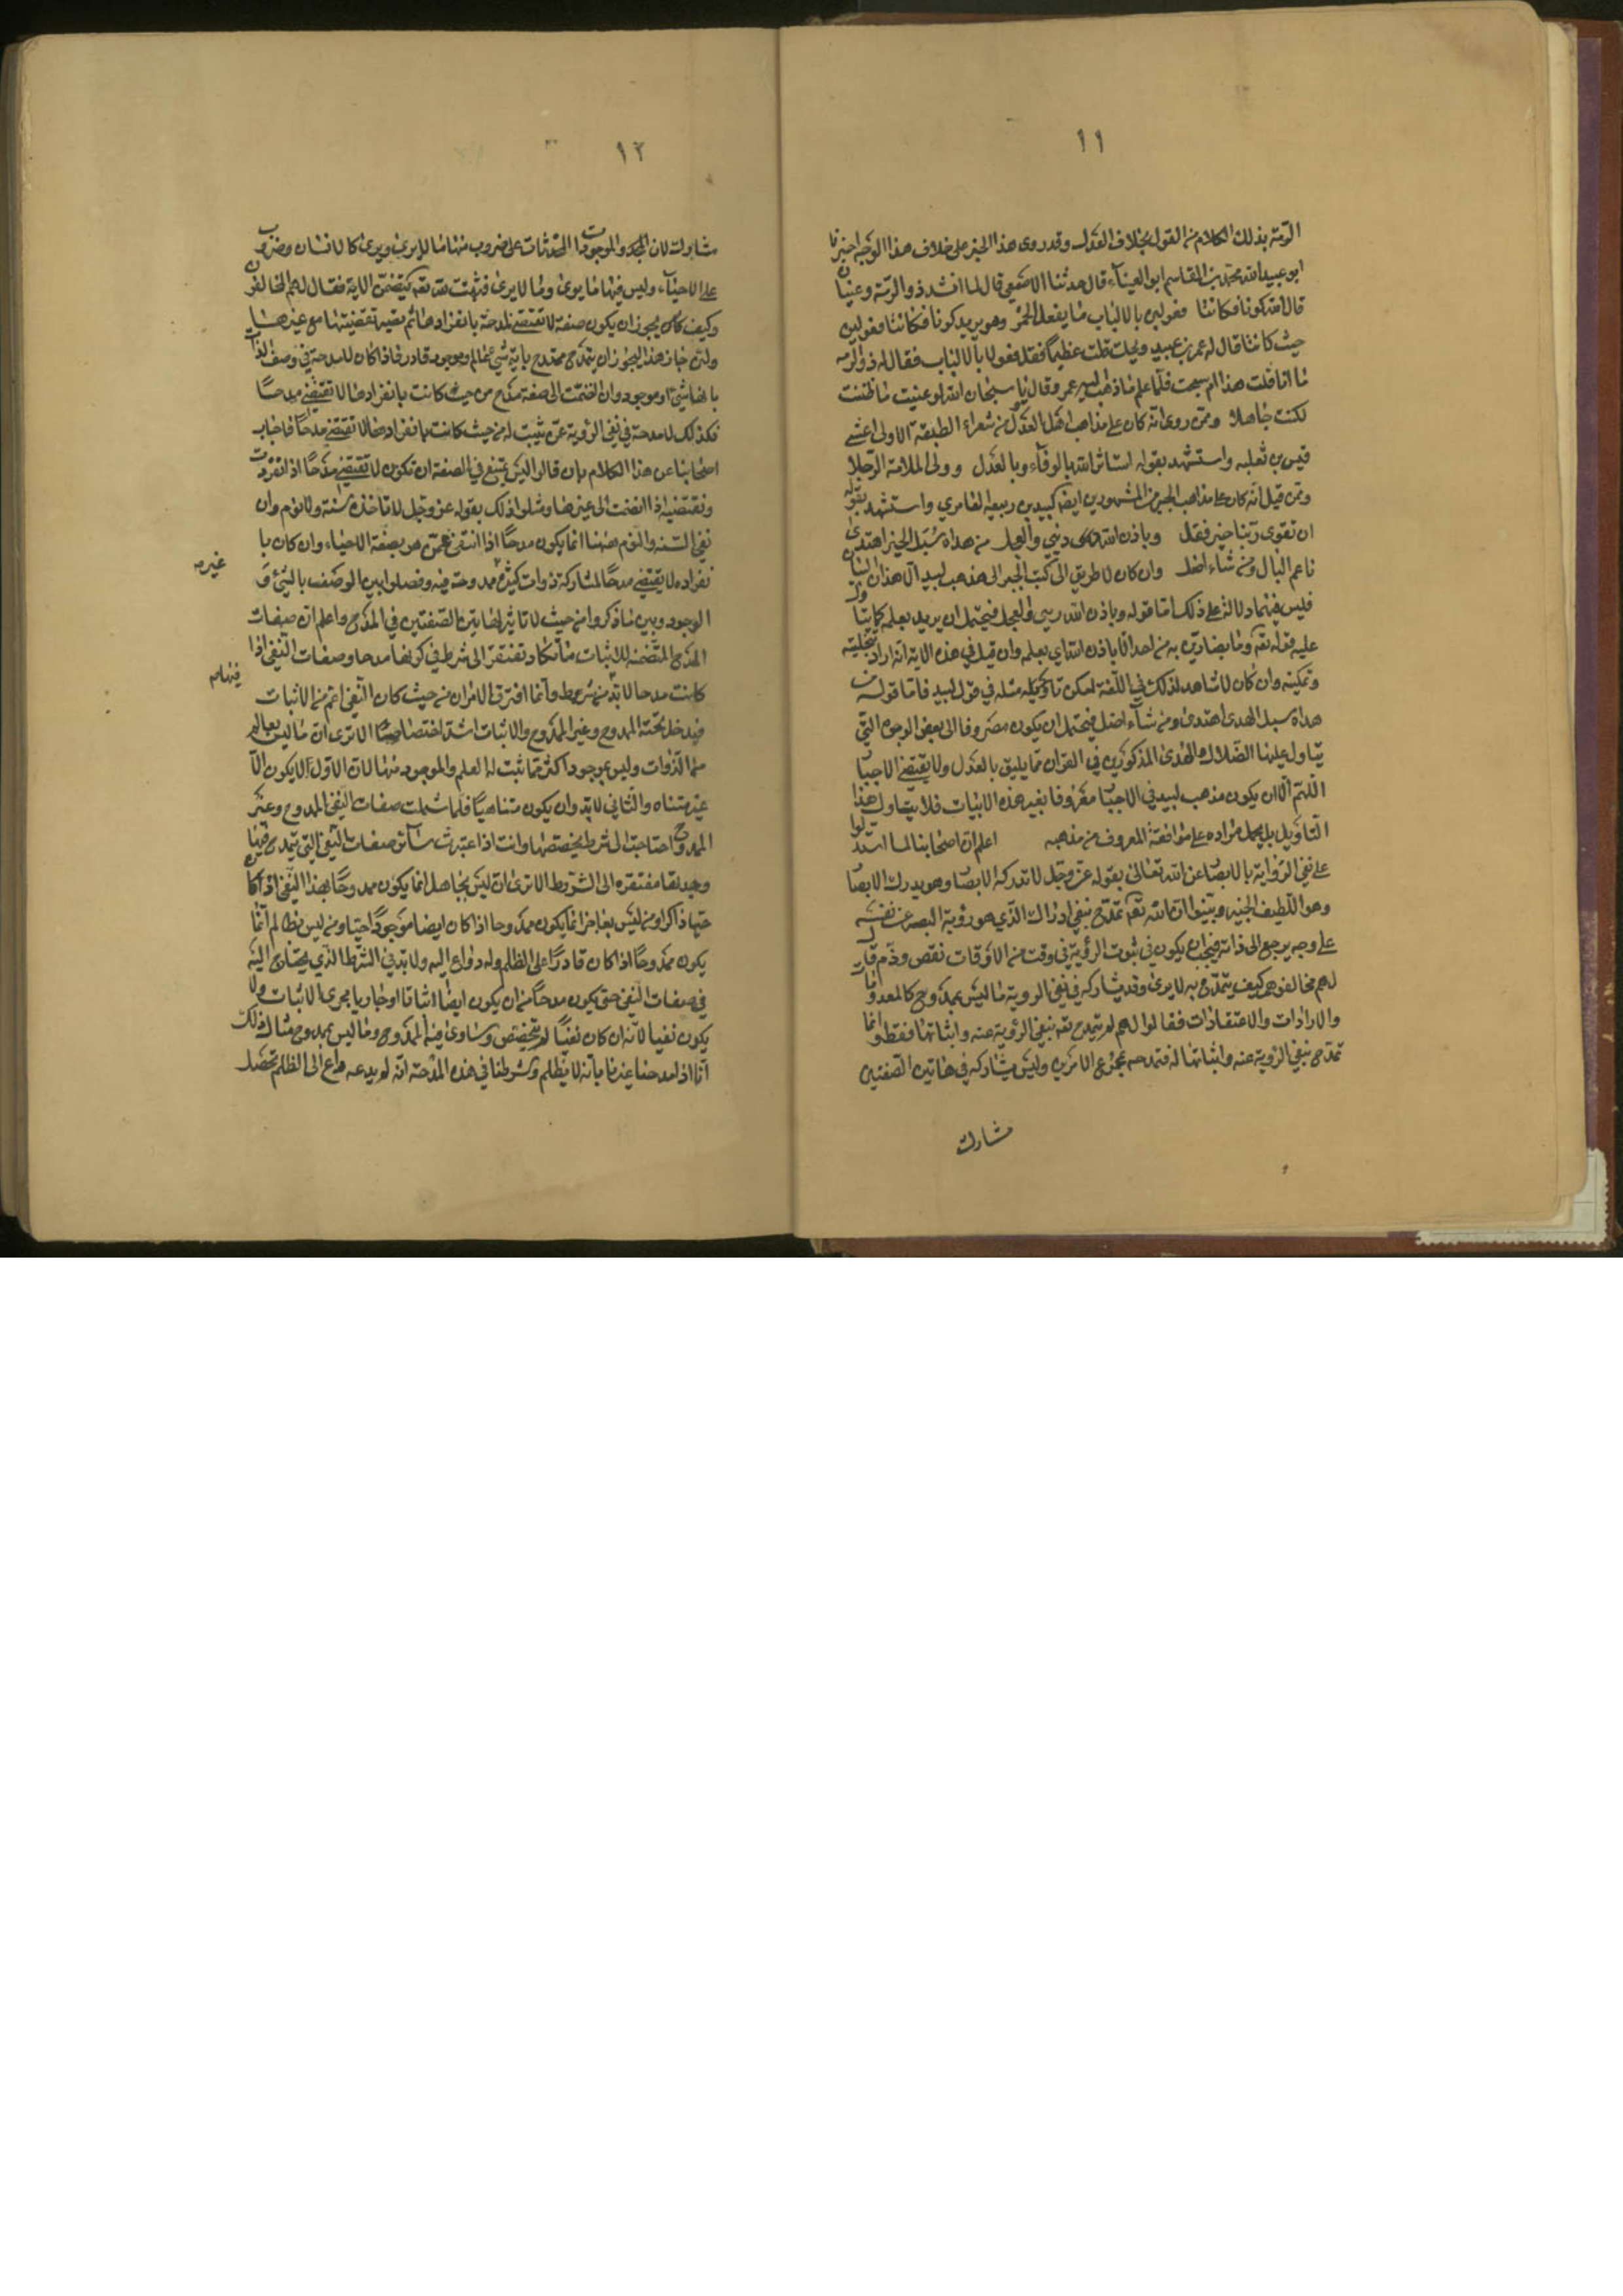 ١١
الرمة بذلك الكلام من القول بخلاف العدل وقد روى هذا الخبر على خلاف هذا الوجه اخبرنا
ابو عبيد الله محمد بن القاسم ابو العيناء قال حدثنا الاصمعي قال لما انشد ذو الرمة وعينان
قال الله كونا فكانتا فعولين بالالباب ما يفعل الخمر وهو يريد كونا فكانتا فعولين
حيث كانتا قال له عمر بن عبيد ويحك قلت عظيما فقل فعولان بالالباب فقال له ذو الرمه
ما انا قلت هذا ام سبحت فلما علم ما ذهب اليه عمر وقال يا سبحان الله لو عنيت ما ظننت
لكنت جاهلا وممن روى انه كان على مذاهب اهل العدل من شعراء الطبقة الاولى اعشى
قيس بن ثعلبه واستشهد بقوله استاثر الله بالوفاء وبالعدل وولى الملامة الرجلا
وممن قيل انه كان على مذاهب الجبر من المشهورين ايضا لبيد بن ربيعه العامري واستشهد بقوله
ان تقوى ربنا خير نفل وباذن الله ريثي والعجل من هداه سبل الخير اهتدى
ناعم البال ومن شاء اضل وان كان لا طريق الى نسب الجبر الى مذهب لبيد الا هذان البيتان
فليس فيهما دلالة على ذلك اما قوله وباذن الله ريثي والعجل فيحتمل ان يريد بعلمه كما يتاول
عليه قوله تعه وما هم بضارين به من احد الا باذن الله اي بعلمه وان قيل في هذه الاية انه اراد بتخليته
وتمكينه وان كان لا شاهد لذلك في اللغة امكن تاويل مثله في قول لبيد فاما قوله من
هداه سبل الهدى اهتدى ومن شاء اضل فيحتمل ان يكون مصروفا الى بعض الوجوه التي
يتاول عليها الضلال والهدى المذكورين في القران مما يليق بالعدل ولا يقتضي الاجبار
اللهم الا ان يكون مذهب لبيد في الاجبار معروفا بغير هذه الابيات فلا يتاول هذا
التاويل بل يحمل مراده على موافقة المعروف من مذهبه اعلم ان اصحابنا لما استدلوا
على نفي الرواية بالابصار عن الله تعالى بقوله عز وجل لا تدركه الابصار وهو يدرك الابصار
وهو اللطيف الخبير وبينوا ان الله تعه تمدح بنفي ادراك الذي هو رؤية البصر عن نفسه
على وجه يرجع الى ذاته فيجب ان يكون في ثبوت الرؤية في وقت من الاوقات نقص وذم قال
لهم مخالفوهم كيف يتمدح به لا يرى وقد يشاركه في نفي الرؤية ما ليس بممدوح كالمعدومات
والارادات والاعتقادات فقالوا لهم لم يتمدح تعه بنفي الرؤية عنه واثباتها فقط وانما
تمدح بنفي الرؤية عنه واثباتها له فتمدحه بمجموع الامرين وليس يشاركه في هاتين الصفتين
مشارك
١٢
مشارك لان الموجودات المحدثات على ضروب منها ما لا يرى ويرى كالانسان وضروب
على الاحياء وليس فيها ما يرى وما لا يرى فثبتت لله تعه يتضمن الاية فقال لهم المخالفون
وكيف يجوز ان يكون صفة لا تقتضي المدحة بانفرادها ثم يصير تقتضيها مع غيرها
ولئن جاز هذا ليجوز ان يتمدح ممتدح بانه شيء عالم وموجود قادر فاذا كان لا مدحة في وصف الذات
بانها شيء وموجود وان انضمت الى صفة مدح من حيث كانت بانفرادها لا تقتضي مدحا
فكذلك لا مدحة في نفي الرؤية عمن يثبت له من حيث كانت بانفرادها لا تقتضي مدحا فاجاب
اصحابنا عن هذا الكلام بان قالوا ليس يمتنع في الصفة ان تكون لا تقتضي مدحا اذا انفردت
وتقتضيه اذا انضمت الى غيرها ومثلوا ذلك بقوله عز وجل لا تاخذه سنة ولا نوم وان
نفي السنة والنوم ههنا انما يكون مدحا اذا انتفى عمن هو بصفة الاحياء وان كان با
نفراده لا يقتضي مدحا لمشاركة ذوات كثيرة غير ممدوحة فيه وفصلوا بين الوصف بالشيء و
الوجود وبين ما ذكروا من حيث لا تاثير لهاتين الصفتين في المدح واعلم ان صفات
المدح المتضمنة للاثبات ما تكاد تفتقر الى شرط في كونها مدحا وصفات النفي اذا
كانت مدحا لا بد فيها من شرط وانما افترق الامران من حيث كان النفي اعم من الاثبات
فيدخل تحته الممدوح وغير الممدوح والاثبات اشد اختصاصا الا ترى ان ما ليس بعالم
من الذوات وليس بموجود اكثر مما ثبت له العلم والوجود منها لان الاول لا يكون الا
غير متناه والثاني لا بد وان يكون متناهيا فلما شملت صفات النفي الممدوح وغير
الممدوح احتاجت الى شرط يخصصها وانت اذا اعتبرت سائر صفات النفي التي يتمدح فيها
وجدتها مفتقره الى الشروط الا ترى ان ليس بجاهل انما يكون ممدوحا بهذا النفي اذا كان
حيا ذاكرا ومن ليس بعاجز انما يكون ممدوحا اذا كان ايضا موجودا حيا ومن ليس بظالم انما
يكون ممدوحا اذا كان قادرا على الظلم وله دواع اليه ولا بد في الشرط الذي يحتاج اليه
في صفات النفي حتى يكون مدحا من ان يكون ايضا اثباتا او جاريا مجرى الاثبات ولا
يكون نفيا لانه ان كان نفيا لم يتخصص وساوى فيه الممدوح وما ليس بممدوح مثال ذلك
انا اذا مدحنا غيرنا بانه لا يظلم وشرطنا في هذه المدحة انه لم يدعه داع الى الظلم تحصل
غيره
فيها